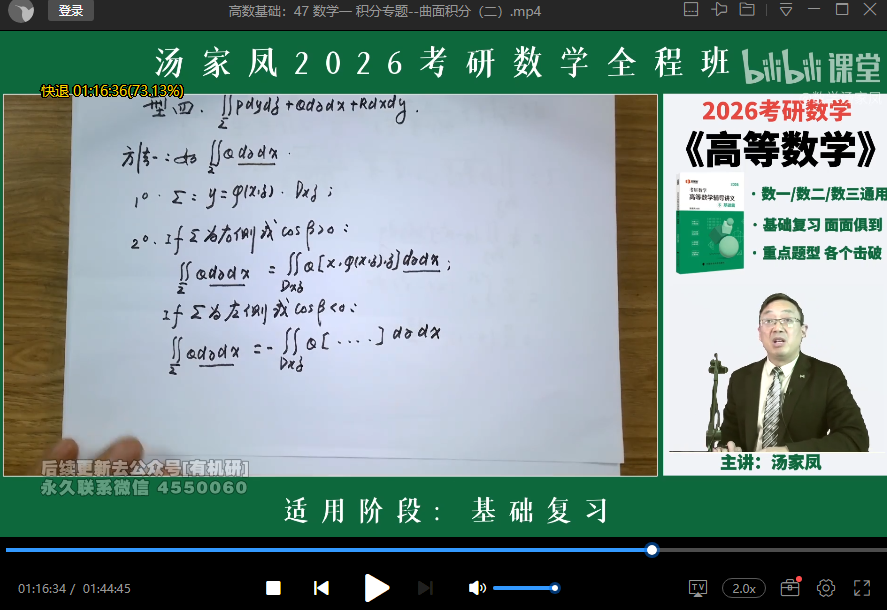 登录
高数基础：47 数学一 积分专题--曲面积分（二）.mp4
汤家凤2026考研数学全程班
bilibili课堂
快退 01:16:36(73.13%)
型四. ∬Σ Pdydz + Qdzdx + Rdxdy.
方法一: 如 ∬Σ Qdzdx.
1°. Σ: y = φ(x,z). Dxz;
2°. If Σ为右侧或 cosβ>0:
∬Σ Qdzdx = ∬Dxz Q[x,φ(x,z),z]dzdx;
If Σ为左侧或cosβ<0:
∬Σ Qdzdx = -∬Dxz Q[....]dzdx
后续更新去公众号[有机研]
永久联系微信 4550060
2026考研数学
《高等数学》
考研数学
高等数学辅导讲义
· 数一/数二/数三通用
· 基础复习 面面俱到
· 重点题型 各个击破
主讲：汤家凤
适用阶段：基础复习
01:16:34 / 01:44:45
TV
2.0x